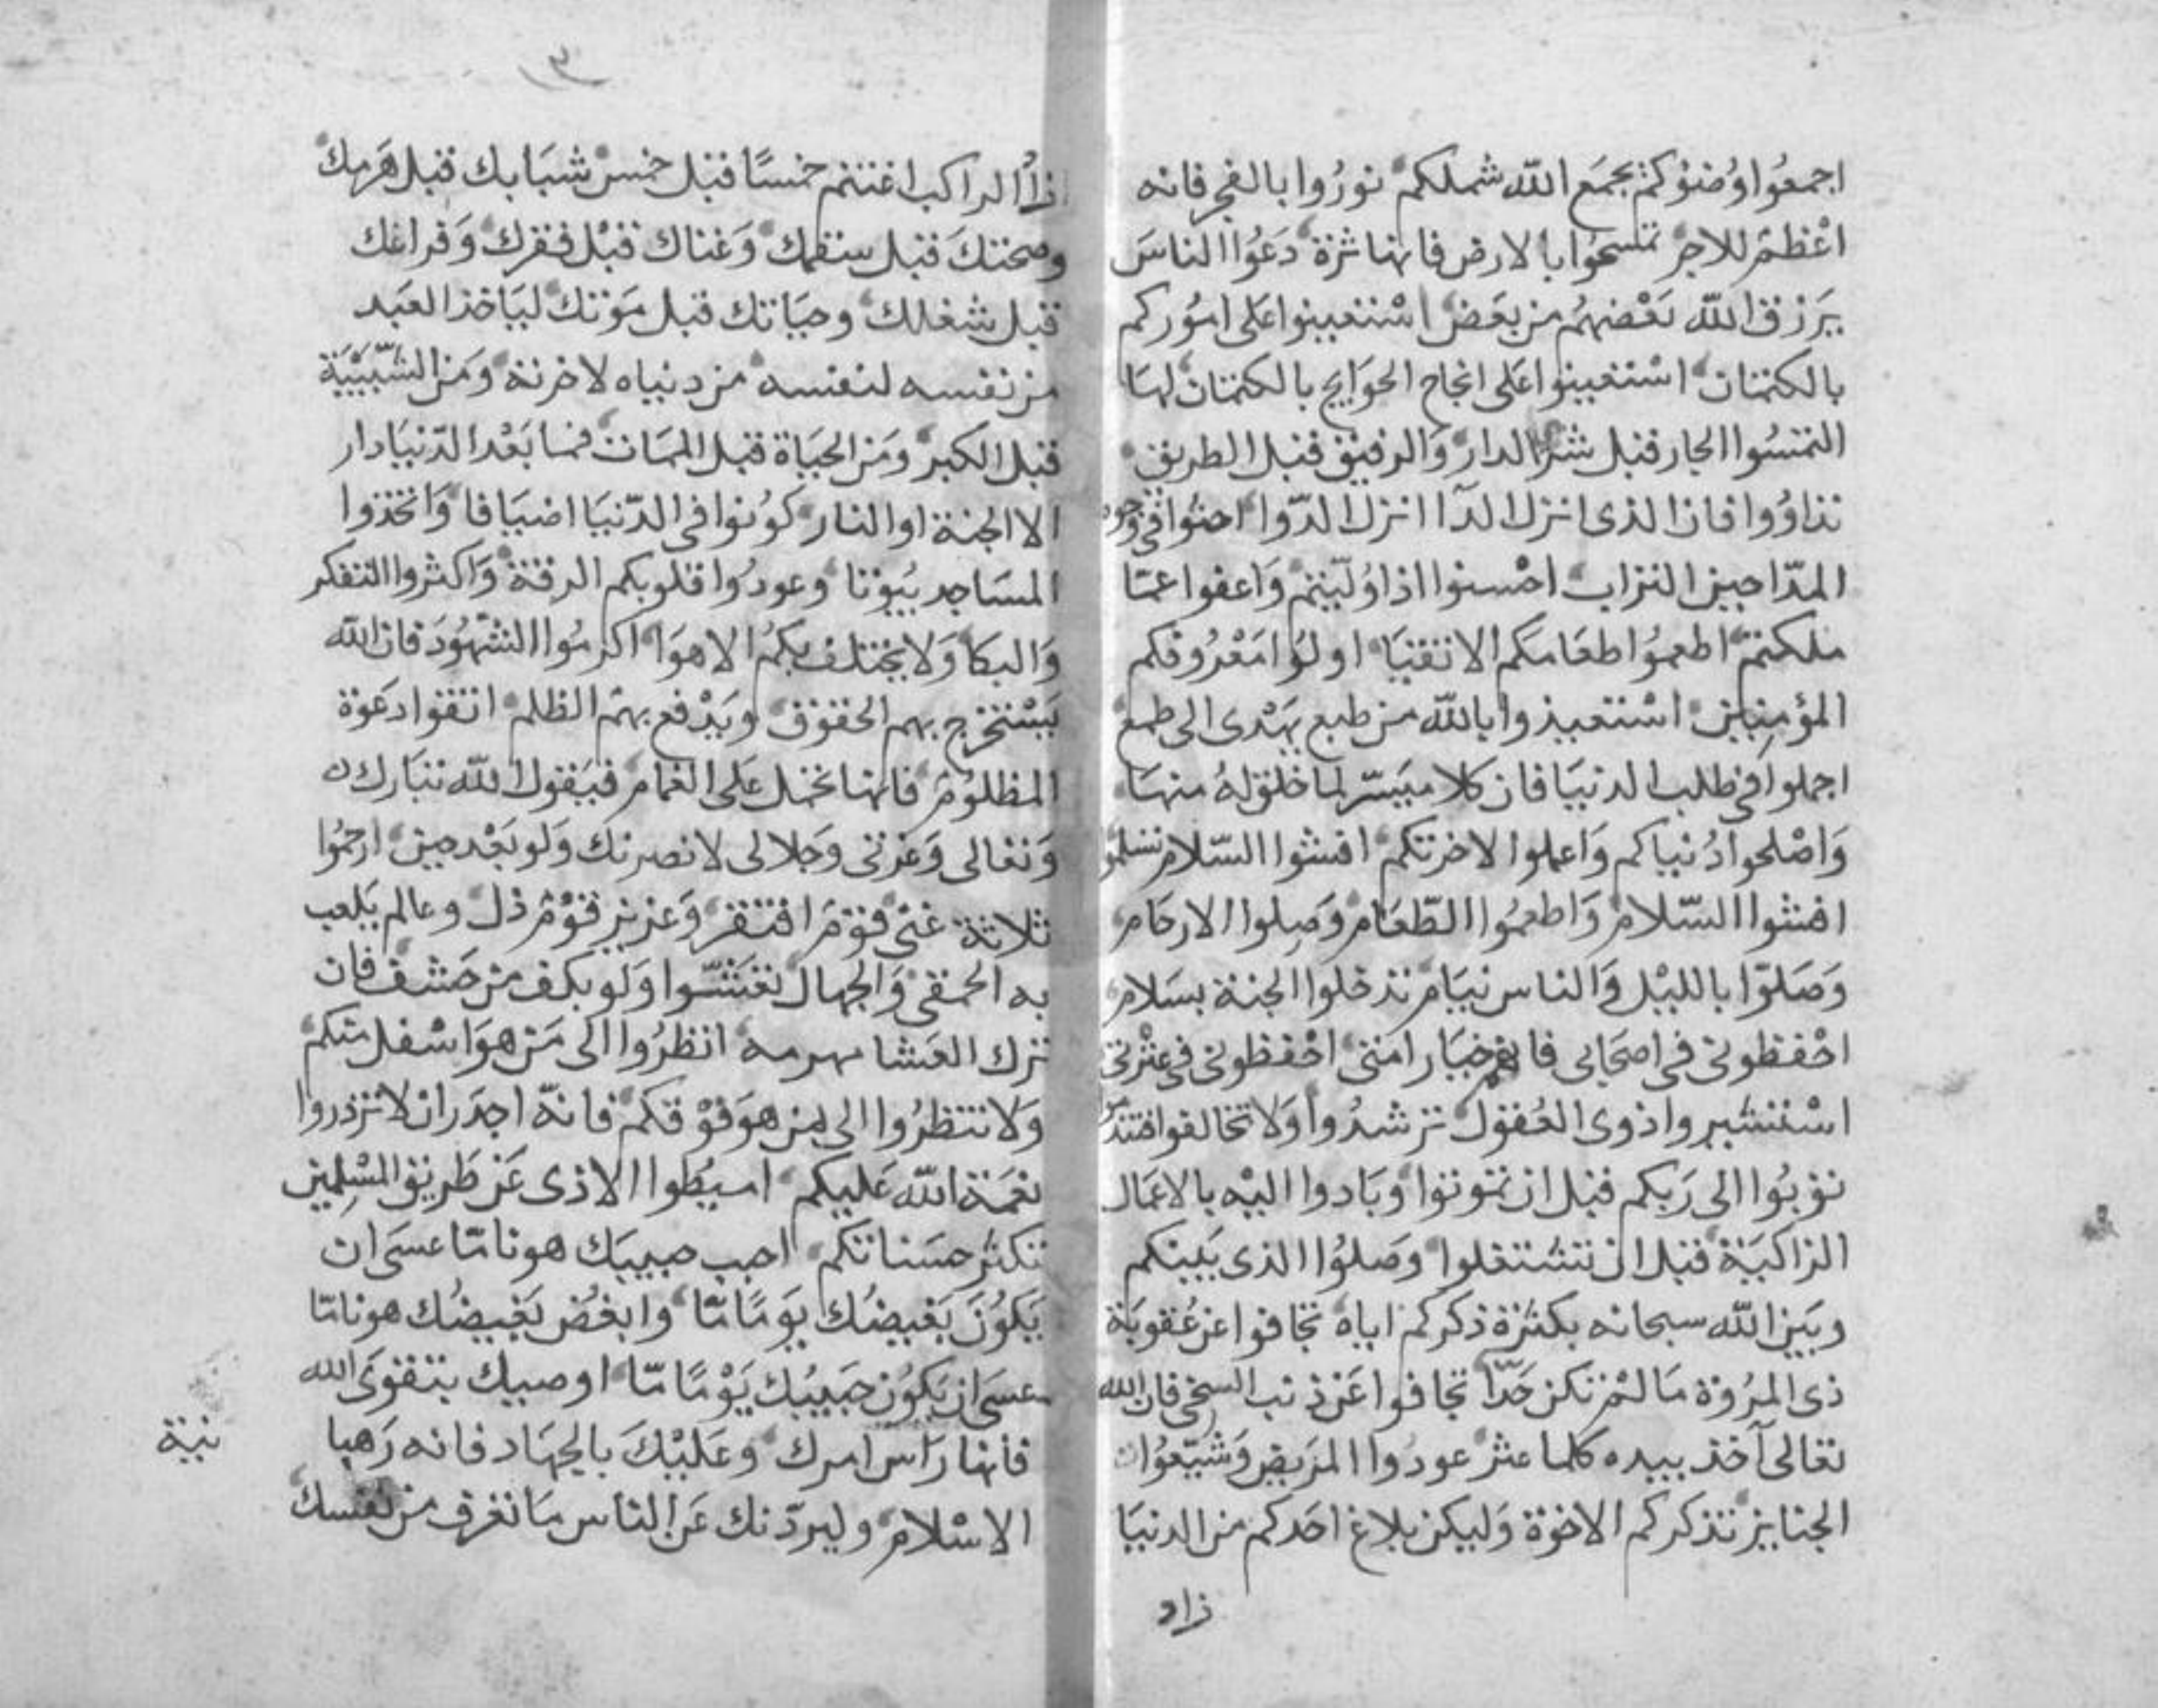 اجمعوا وضوكم يجمع الله شملكم نوروا بالفجر فانه
اعظم للاجر تمسحوا بالارض فانها برة دعوا الناس
يرزق الله بعضهم من بعض استعينوا على اموركم
بالكتمان استعينوا على انجاح الحوايج بالكتمان لها
التمسوا الجار قبل شرا الدار والرفيق قبل الطريق
تداووا فان الذى انزل الدآ انزل الدوا احثوا فى وجوه
المداحين التراب احسنوا اذا وليتم واعفوا عما
ملكتم اطعموا طعامكم الاتقيا اولوا معروفكم
المؤمنين استعيذوا بالله من طبع يهدى الى طمع
اجملوا فى طلب الدنيا فان كلا ميسر لما خلق له منها
واصلحوا دنياكم واعملوا لاخرتكم افشوا السلام تسلموا
افشوا السلام واطعموا الطعام وصلوا الارحام
وصلوا بالليل والناس نيام تدخلوا الجنة بسلام
احفظونى فى اصحابى فانهم خيار امتى احفظونى فى عترتى
استشيروا ذوى العقول ترشدوا ولا تخالفوا فتندموا
توبوا الى ربكم قبل ان تموتوا وبادوا اليه بالاعمال
الزاكية قبل ان تشتغلوا وصلوا الذى بينكم
وبين الله سبحانه بكثرة ذكركم اياه تجافوا عن عقوبة
ذى المروة ما لم تكن حدا تجافوا عن ذنب السخى فان الله
تعالى آخذ بيده كلما عثر عودوا المريض وشيعوا
الجنايز تذكركم الاخرة وليكن بلاغ احدكم من الدنيا
زاد
٣
زاد الراكب اغتنم خمسا قبل خمس شبابك قبل هرمك
وصحتك قبل سقمك وغناك قبل فقرك وفراغك
قبل شغلك وحياتك قبل موتك لياخذ العبد
من نفسه لنفسه من دنياه لاخرته ومن الشبيبة
قبل الكبر ومن الحياة قبل الممات فما بعد الدنيا دار
الا الجنة او النار كونوا فى الدنيا اضيافا واتخذوا
المساجد بيوتا وعودوا قلوبكم الرقة واكثروا التفكر
والبكا ولا يختلف بكم الاهوا اكرموا الشهود فان الله
يستخرج بهم الحقوق ويدفع بهم الظلم اتقوا دعوة
المظلوم فانها تحمل على الغمام فيقول الله تبارك
وتعالى وعزتى وجلالى لانصرنك ولو بعد حين ارحموا
ثلاثة غنى قوم افتقر وعزيز قوم ذل وعالم يلعب
به الحمقى والجهال تعشوا ولو بكف من حشف فان
ترك العشا مهرمه انظروا الى من هو اسفل منكم
ولا تنظروا الى من هو فوقكم فانه اجدر ان لا تزدروا
نعمة الله عليكم اميطوا الاذى عن طريق المسلمين
تكثر حسناتكم احبب حبيبك هونا ما عسى ان
يكون بغيضك يوما ما وابغض بغيضك هونا ما
عسى ان يكون حبيبك يوما ما اوصيك بتقوى الله
فانها راس امرك وعليك بالجهاد فانه رهبا
نية
الاسلام وليردنك عن الناس ما تعرف من نفسك